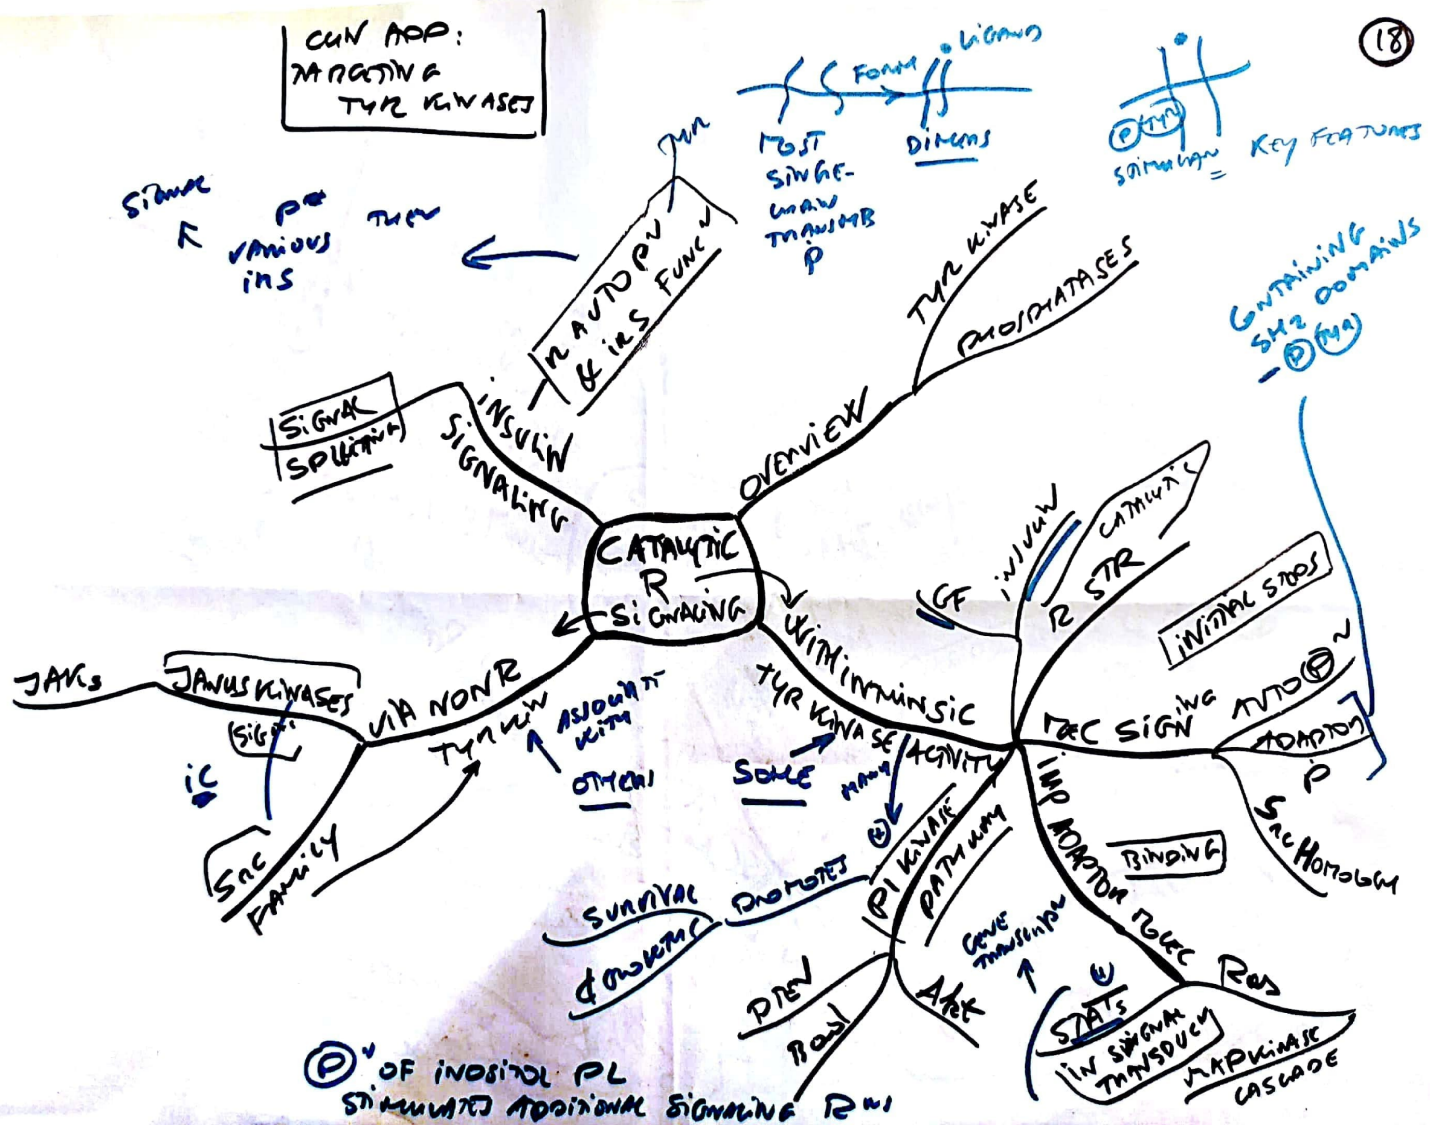 18
CLIN APP:
TARGETING
TYR KINASES
LIGAND
FORM
MOST
SINGLE-
CHAIN
TRANSMB
P
DIMERS
P TYR
KEY FEATURES
CONTAINING
SH2 DOMAINS
- P TYR
SIGNAL
P
VARIOUS
IRS
THEN
TYR
R AUTO P~
& IRS FUNC~
INSULIN
SIGNALING
SIGNAL
SPLITTING
OVERVIEW
TYR KINASE
PHOSPHATASES
CATALYTIC
R
SIGNALING
WITH INTRINSIC
TYR KINASE
ACTIVITY
SOME
MANY
R STR
GF
INSULIN
CATALYTIC
INITIAL STEPS
REC SIGNING
AUTO P~
ADAPTOR
P
SRC HOMOLOGY
IMP ADAPTOR MOLEC
BINDING
Ras
MAP KINASE
CASCADE
STATs
IN SIGNAL
TRANSDUC~
GENE
TRANSCRIP~
PI KINASE
PATHWAY
PROMOTES
SURVIVAL
& GROWTH
PTEN
Bad
Akt
VIA NON R
TYR KIN
ASSOCIATE
WITH
OTHERS
JANUS KINASES
JAKs
SIG
IC
SRC
FAMILY
P~ OF INOSITOL PL
STIMULATES ADDITIONAL SIGNALING R~NS